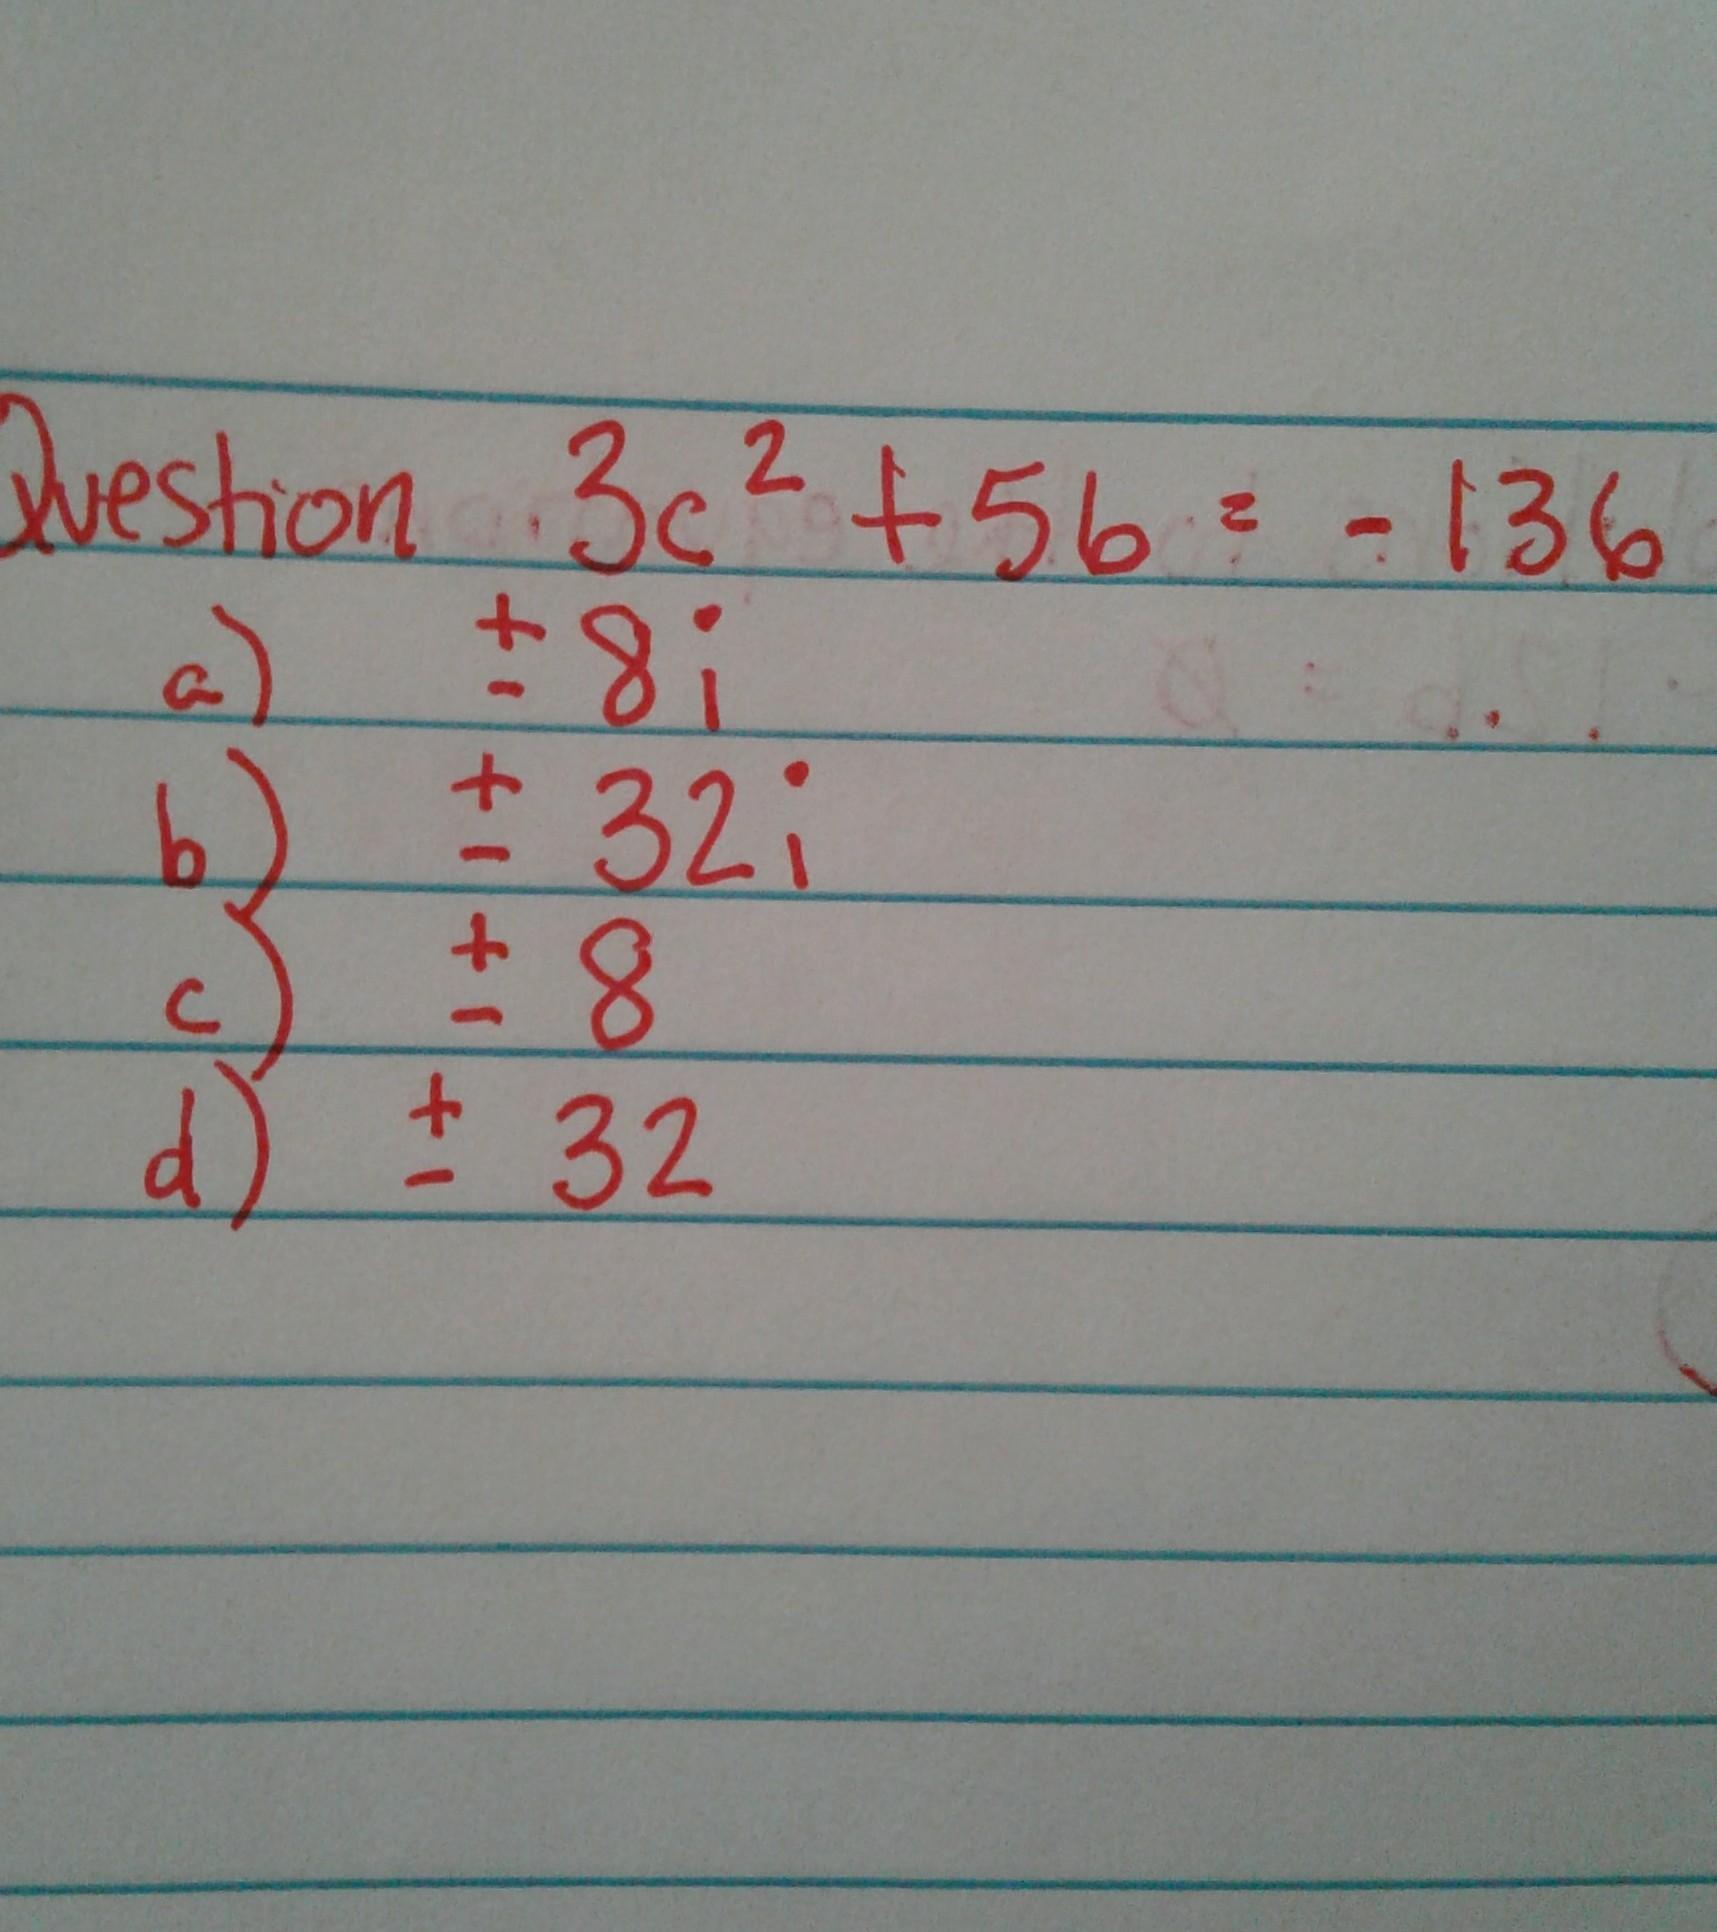 Question 3c² + 56 = -136
a) ± 8i
b) ± 32i
c) ± 8
d) ± 32